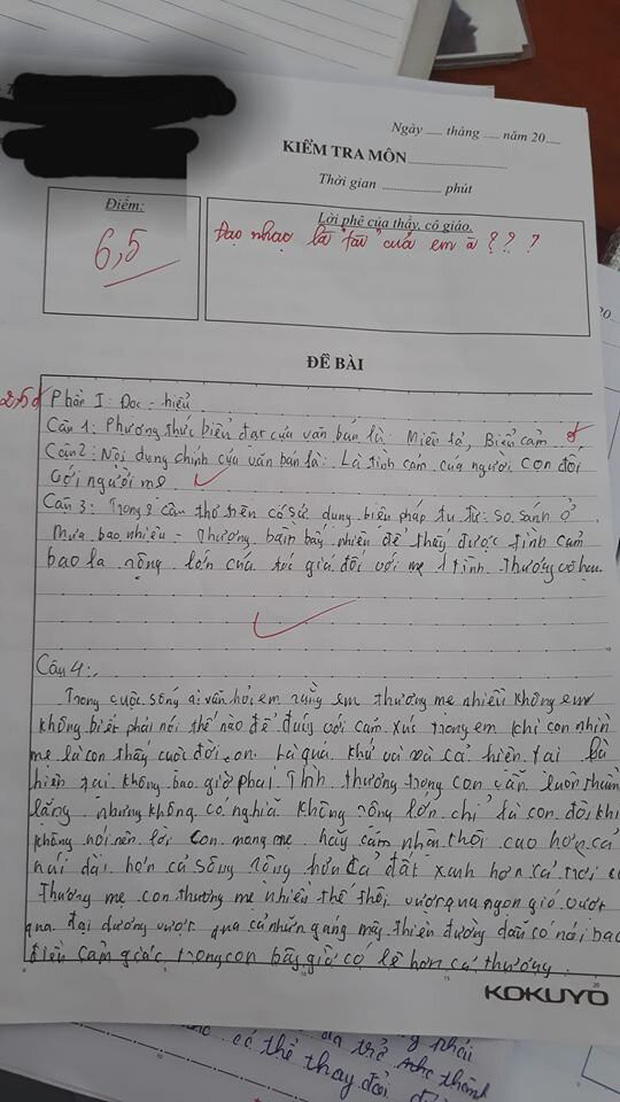 Ngày ___ tháng ___ năm 20___
KIỂM TRA MÔN
Thời gian ___ phút
Điểm:
6,5
Lời phê của thầy, cô giáo.
Đạo nhạc là "tài" của em à ? ? ?
ĐỀ BÀI
2,5đ
Phần I: Đọc - hiểu
Câu 1: Phương thức biểu đạt của văn bản là: Miêu tả, Biểu cảm
Câu 2: Nội dung chính của văn bản là: Là tình cảm của người con đối
với người mẹ
Câu 3: Trong 2 câu thơ trên có sử dụng biện pháp tu từ: so sánh ở
Mưa bao nhiêu - thương bầm bấy nhiêu để thấy được tình cảm
bao la rộng lớn của tác giả đối với mẹ 1 tình thương vô hạn
Câu 4:
Trong cuộc sống ai vẫn hỏi em rằng em thương mẹ nhiều không em
không biết phải nói thế nào để đúng với cảm xúc trong em khi con nhìn
mẹ là con thấy cuộc đời con. Là quá khứ và cả hiện tại là
hiện tại không bao giờ phai. Tình thương trong con vẫn luôn thầm
lặng nhưng không có nghĩa không rộng lớn chỉ là con đôi khi
không nói nên lời con mong mẹ hãy cảm nhận thôi cao hơn cả
núi dài hơn cả sông rộng hơn cả đất xanh hơn cả trời
Thương mẹ con thương mẹ nhiều thế thôi vượt qua ngọn gió vượt
qua đại dương vượt qua cả những áng mây thiên đường dẫu có nói bao
điều cảm giác trong con bây giờ có lẽ hơn cả thương.
KOKUYO
có thể thay đổi